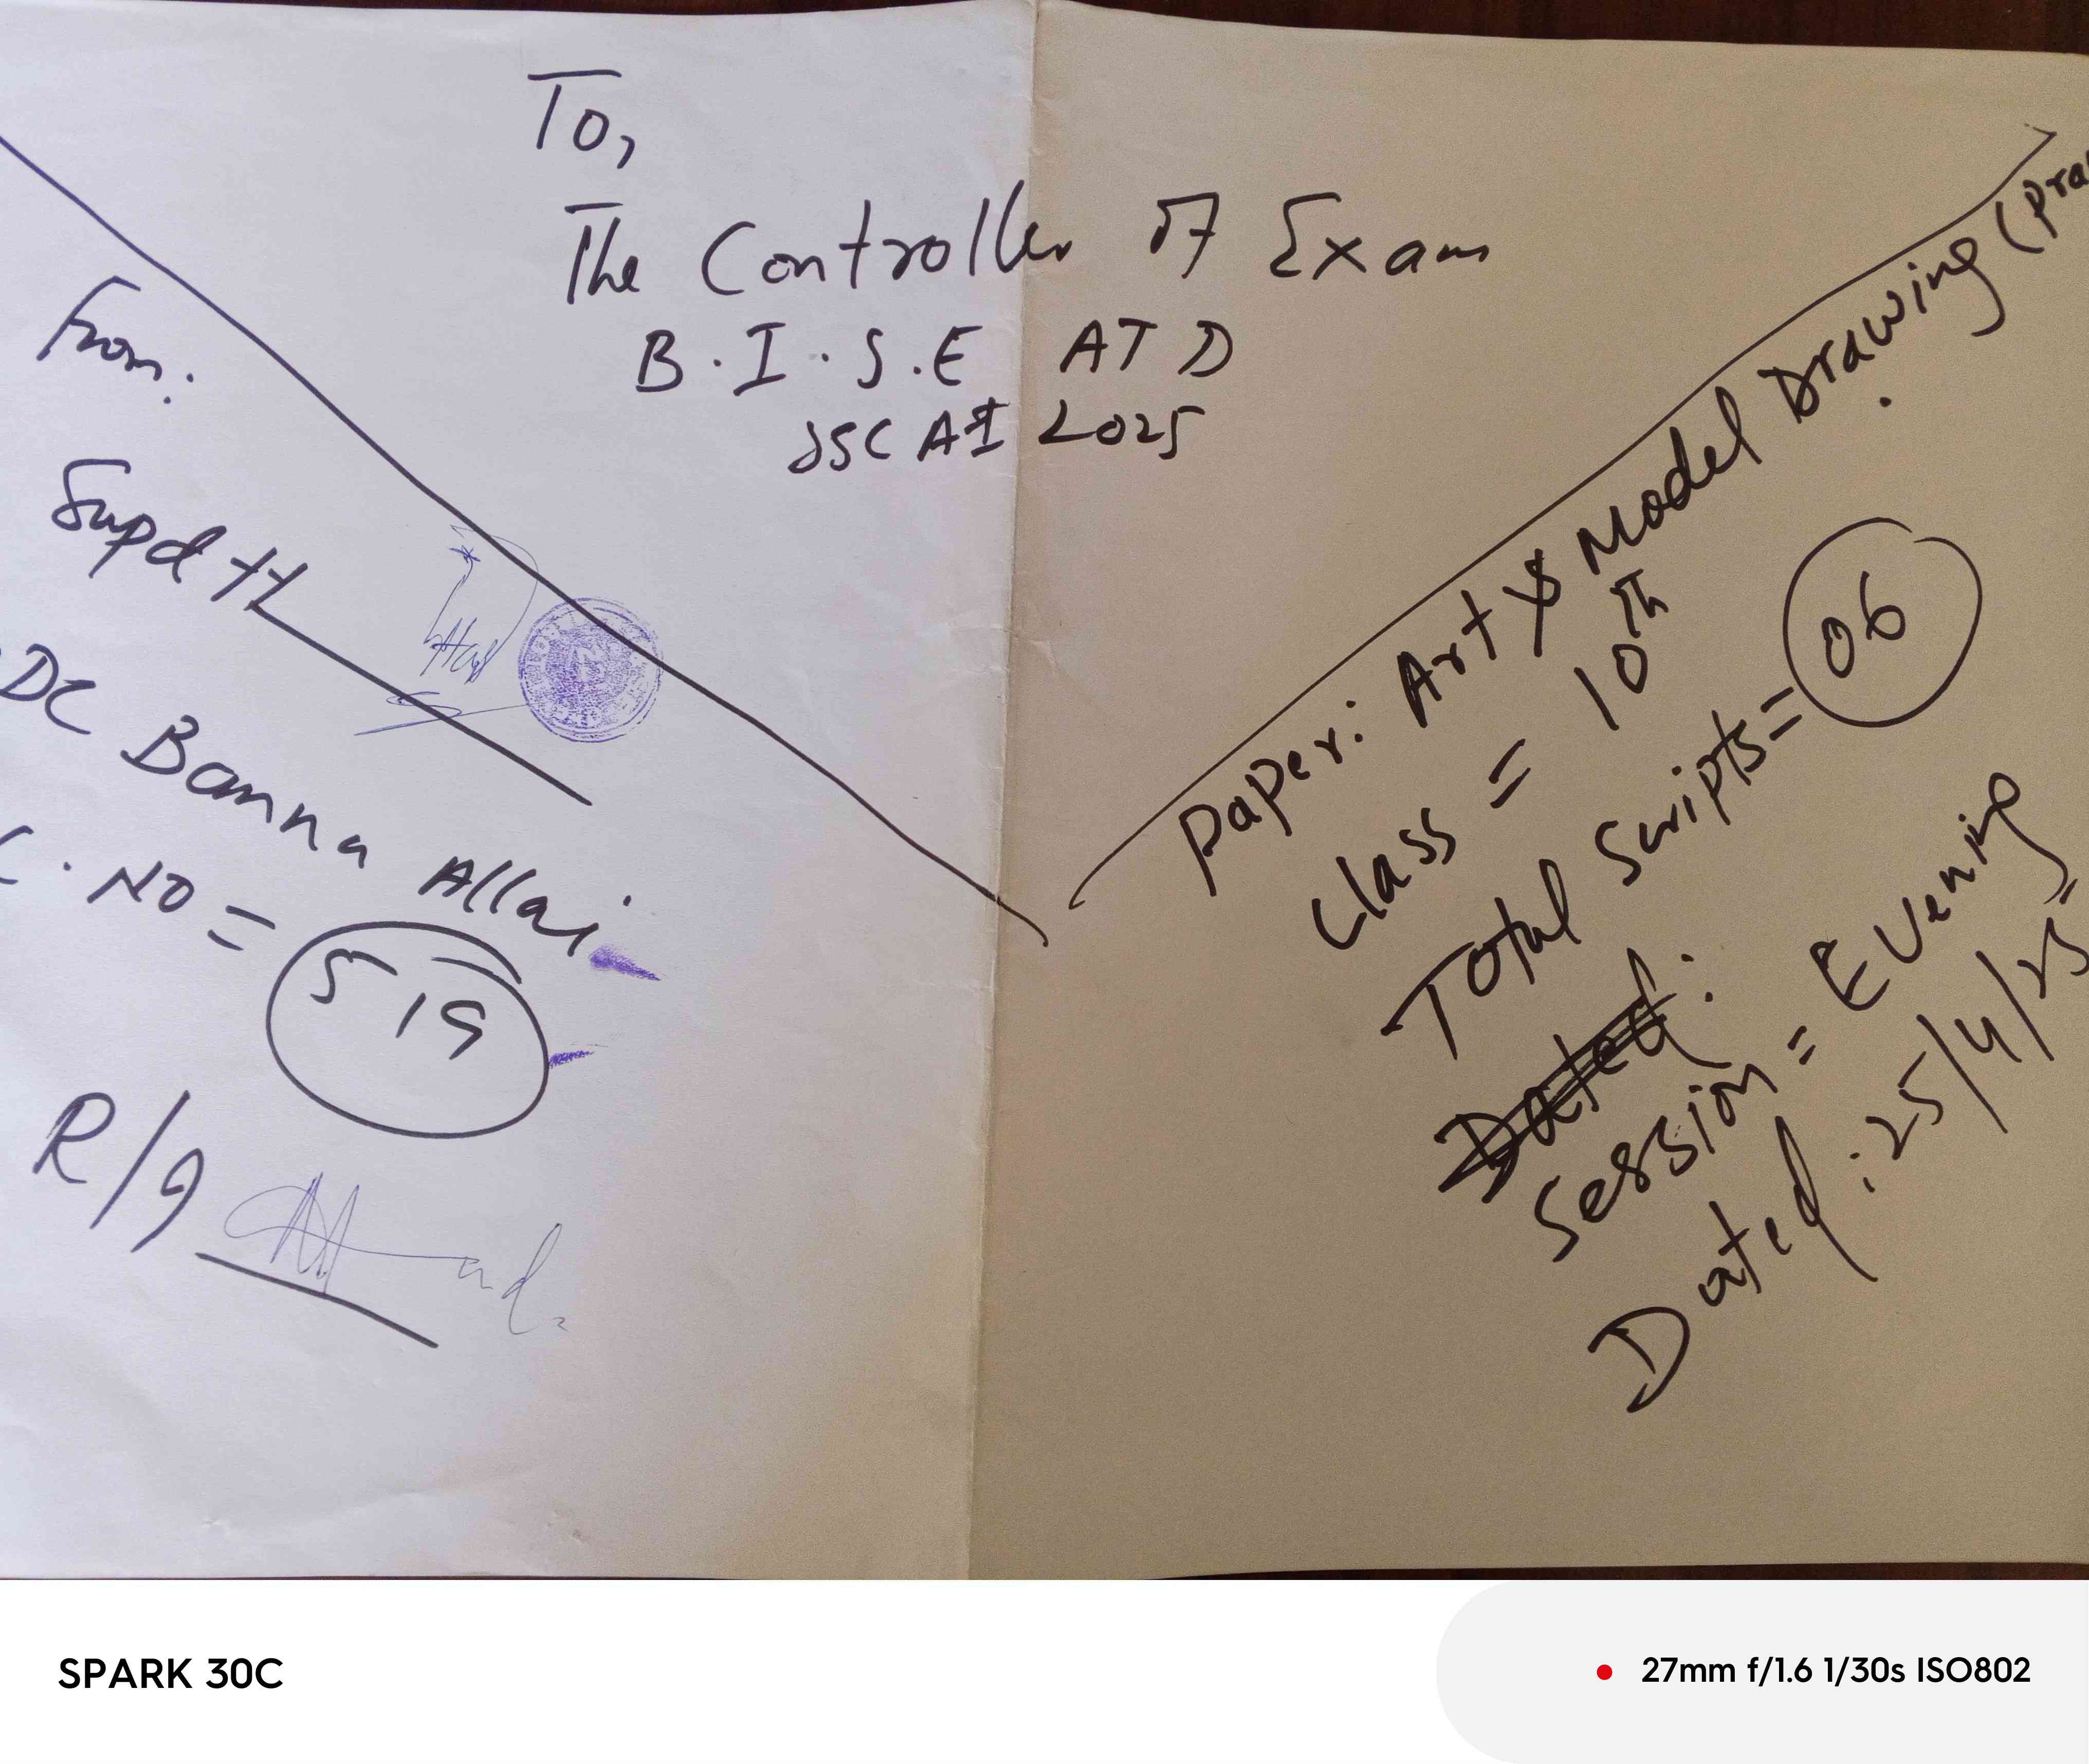 To,
The Controller of Exam
B.I.S.E ATD
SSC AI 2025
From:
Supdtt
DC Banna Allai
C.NO = 519
R/g
Paper: Art & Model Drawing (Pra
Class = 10th
Total Scripts = 06
Dated:
Session = Evening
Dated: 25/4/25
SPARK 30C
27mm f/1.6 1/30s ISO802